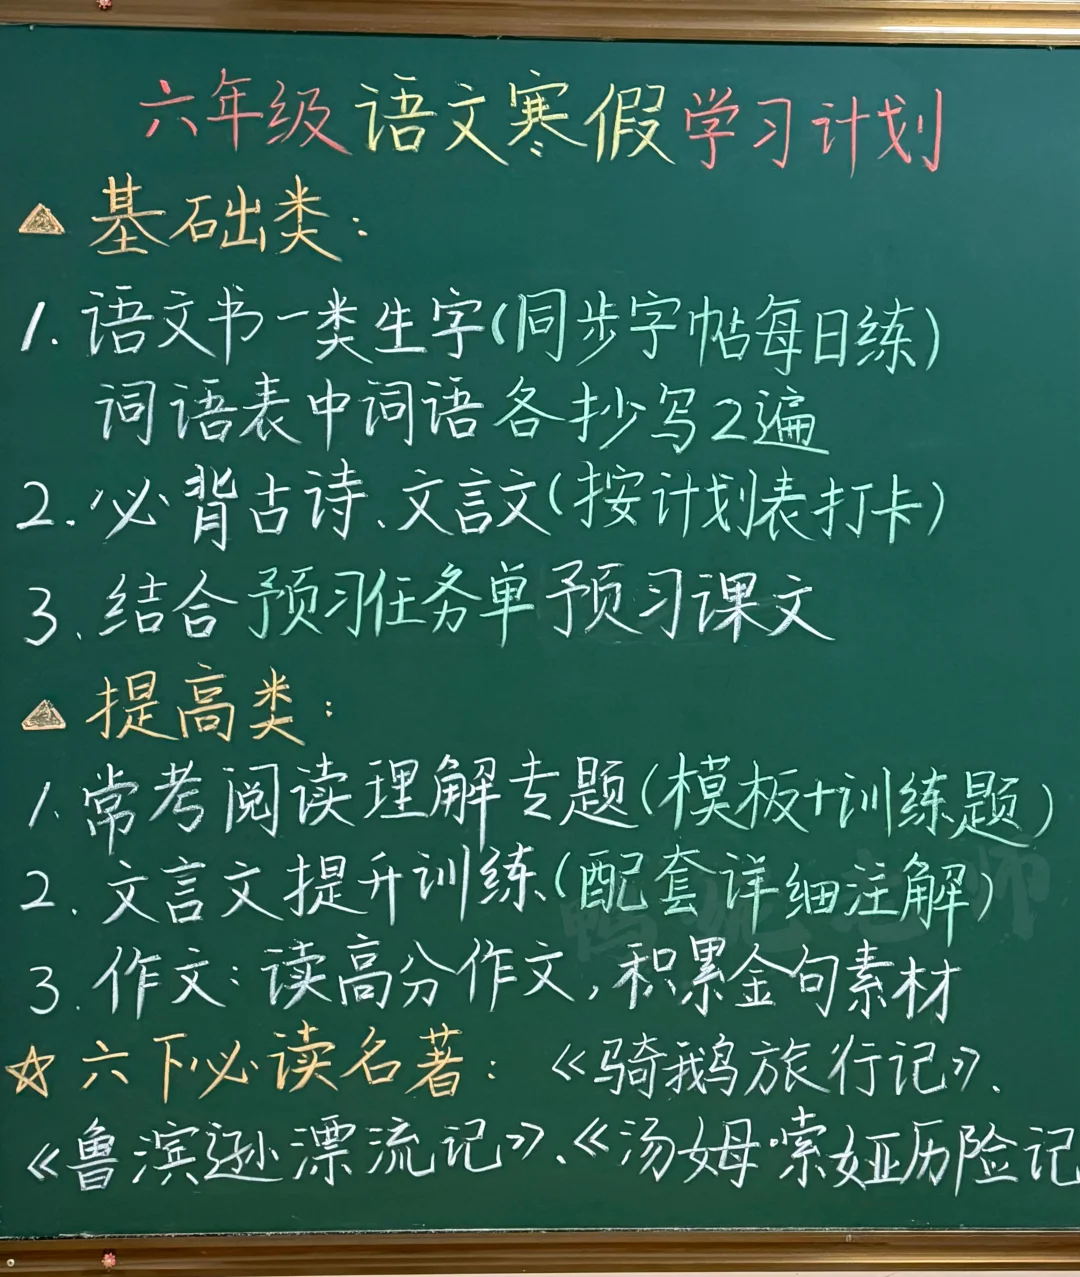 六年级语文寒假学习计划
基础类：
1.语文书一类生字(同步字帖每日练)
词语表中词语各抄写2遍
2.必背古诗、文言文(按计划表打卡)
3.结合预习任务单预习课文
提高类：
1.常考阅读理解专题(模板+训练题)
2.文言文提升训练(配套详细注解)
3.作文:读高分作文,积累金句素材
☆六下必读名著：《骑鹅旅行记》、
《鲁滨逊漂流记》、《汤姆嗦娅历险记